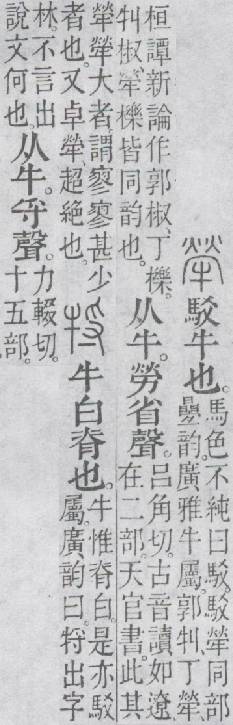 犖駁牛也。馬色不純曰駁。駁犖同部
疊韵。廣雅牛屬。郭牞、丁犖。
桓譚新論作郭椒、丁櫟。
牞椒、犖櫟皆同韵也。从牛。勞省聲。呂角切。古音讀如遼。
在二部。天官書。此其
犖犖大者。謂寥寥甚少
者也。又卓犖、超絶也。㸹牛白脊也。牛惟脊白。是亦駁
屬。廣韵曰。㸹出字
林。不言出
說文何也。从牛。寽聲。力輟切。
十五部。